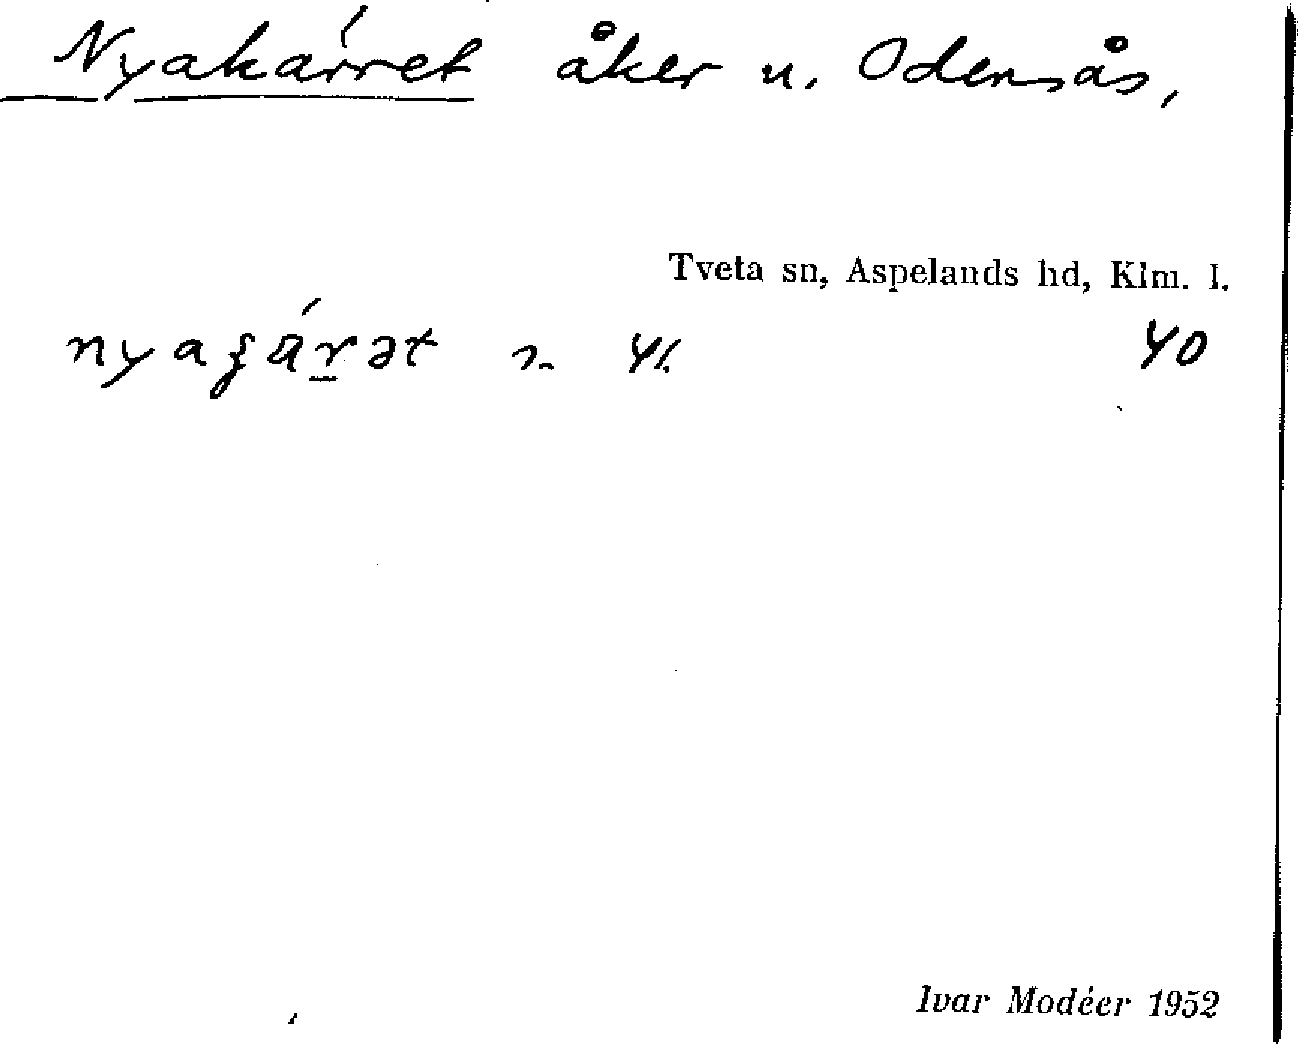 Nyakärret åker u. Odensås,
Tveta sn, Aspelands hd, Klm. l.
40
Ivar Modéer 1952